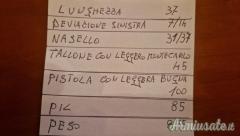 LUNGHEZZA 37
DEVIAZIONE SINISTRA 7/14
NASELLO 31/37
TALLONE CON LEGGERO MONTECARLO
45
PISTOLA CON LEGGERA BUGNA
100
PIL 85
PESO
Armiusate.it